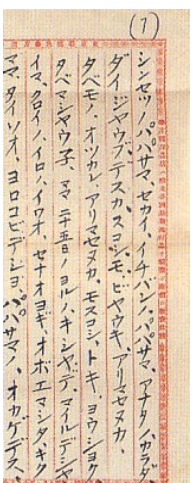 (1)
シンセツ、パパサマ、セカイ、イチバンノ、パパサマ、アナタノ、カラダ、
ダイジヤウブデスカ、スコシモ、ビヤウキ、アリマセヌカ、
タベモノ、オツカレ、アリマセヌカ、モスコシトキ、ヨウシヨク
タベマシヤウ子、ママ、二十五日ノヨルノ、キシヤデ、マイルデシヤ
イマ、クロイノ、イロノ、イワオ、セナオヨギ、オボエマシタ、キク
ママ、タイソオ、ヨロコビデシヨ、パパサマノ、オカゲデス、